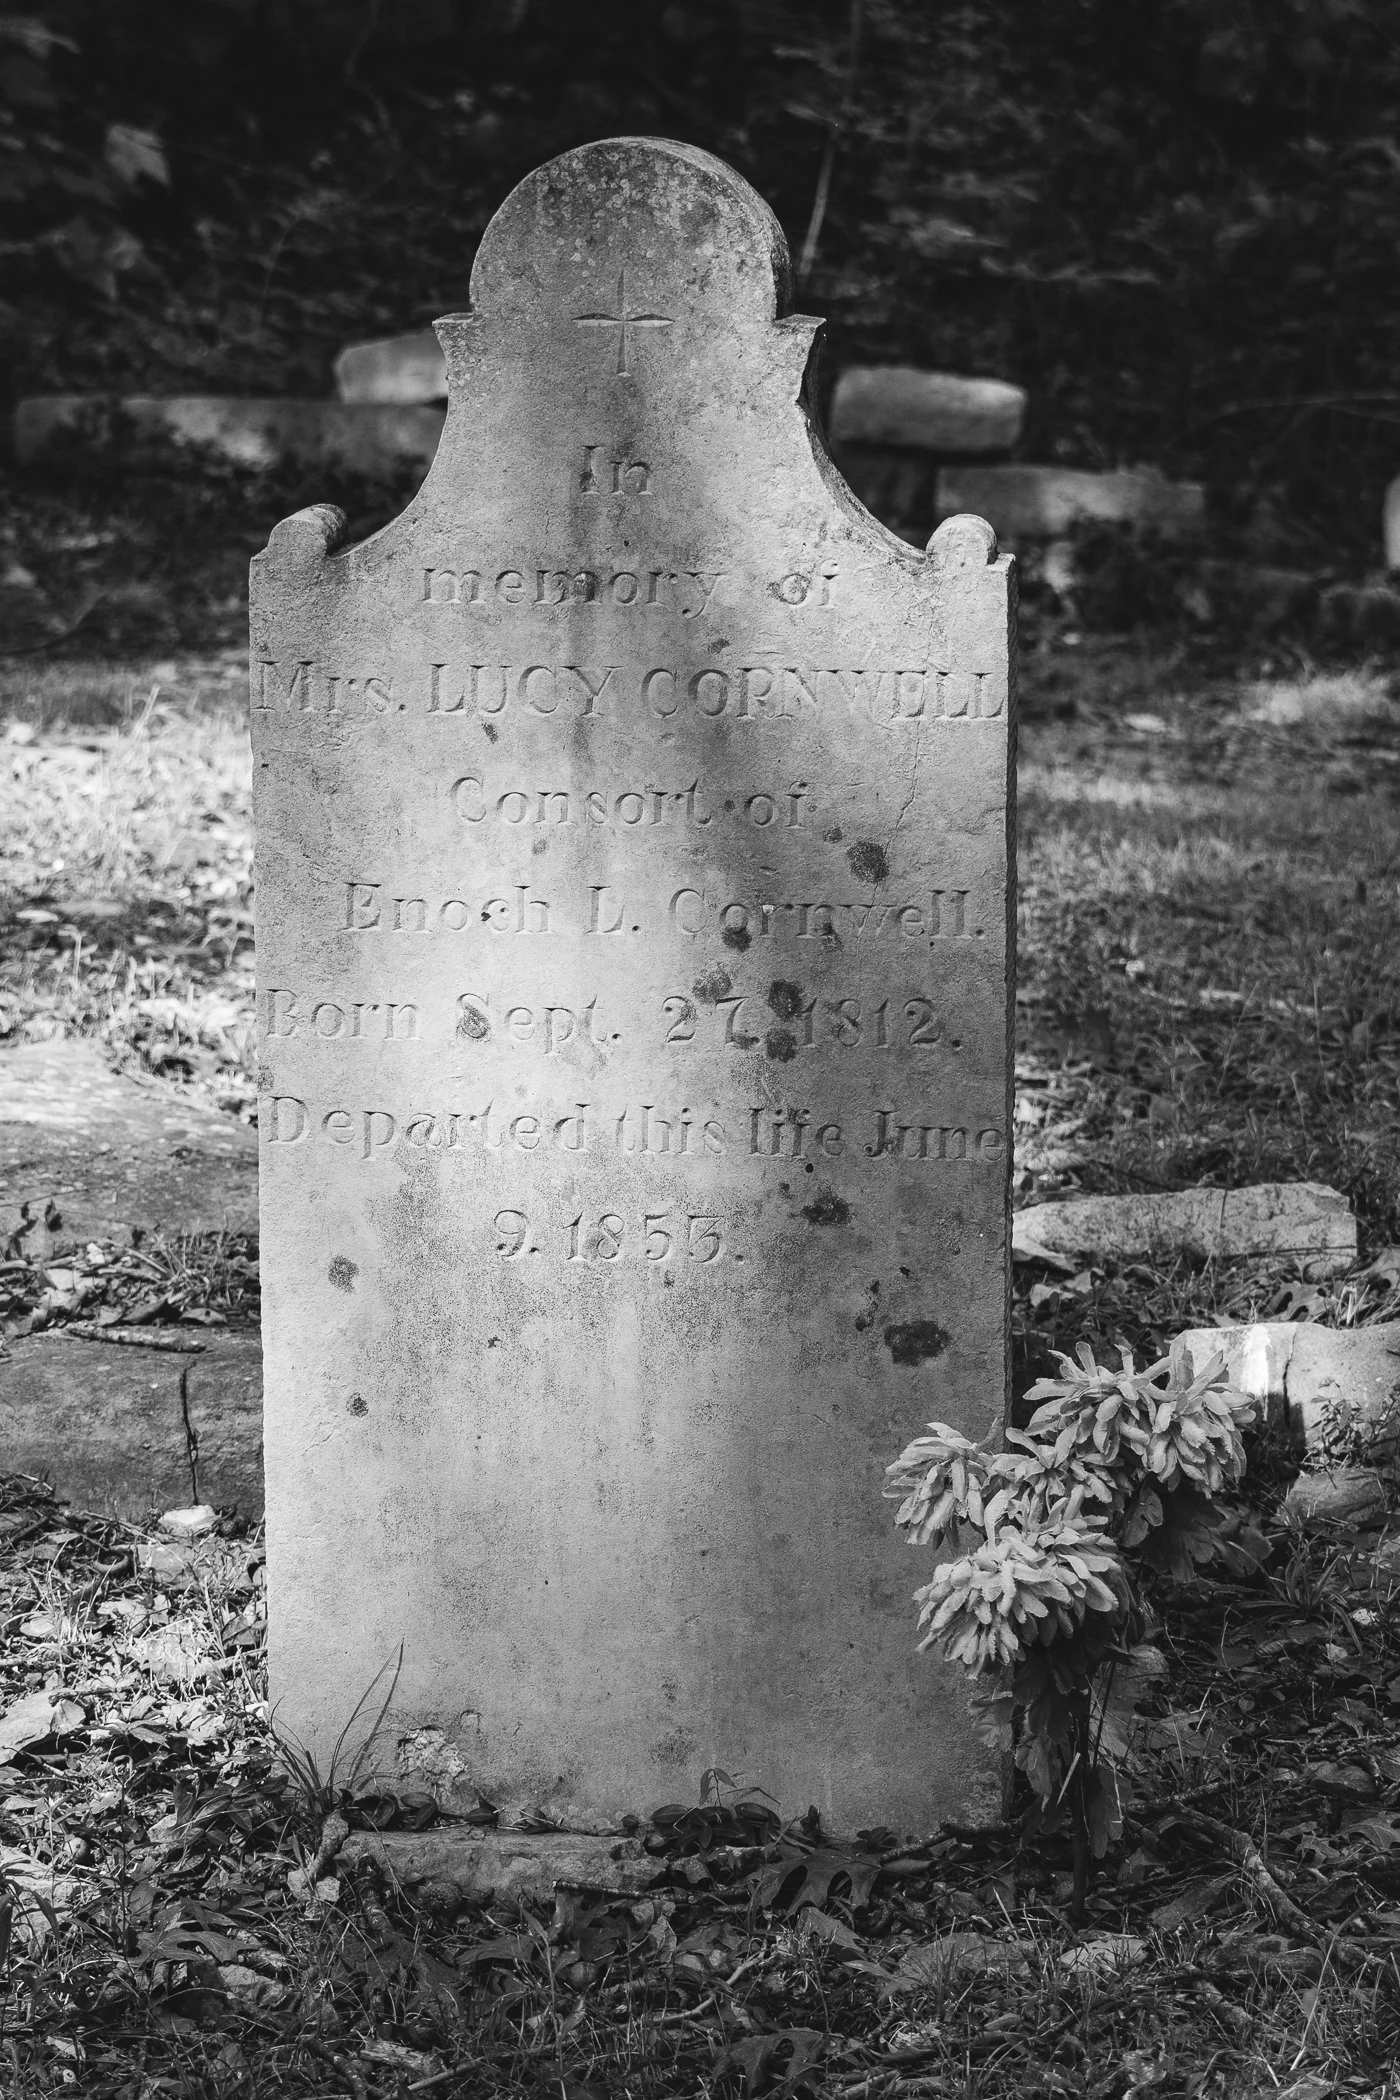 In
memory of
Mrs. LUCY CORNWELL
Consort of
Enoch L. Cornwell.
Born Sept. 27. 1812.
Departed this life June
9. 1853.